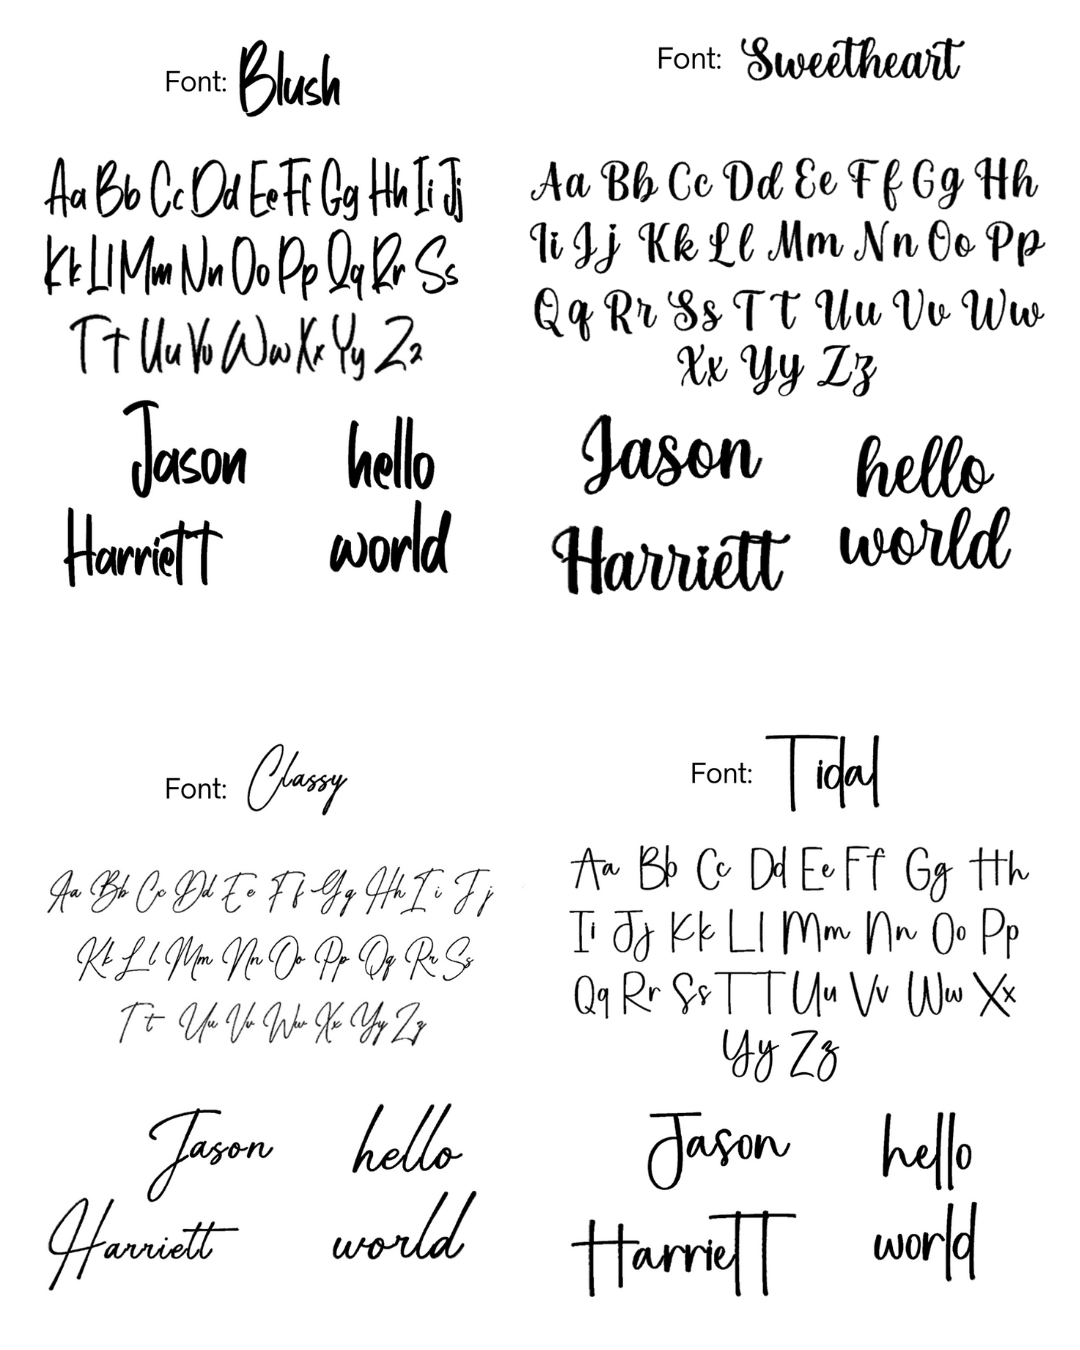 Font: Blush
Aa Bb Cc Dd Ee Ff Gg Hh Ii Jj
Kk Ll Mm Nn Oo Pp Qq Rr Ss
Tt Uu Vv Ww Xx Yy Zz
Jason
hello
Harriett
world
Font: Sweetheart
Aa Bb Cc Dd Ee Ff Gg Hh
Ii Jj Kk Ll Mm Nn Oo Pp
Qq Rr Ss Tt Uu Vv Ww
Xx Yy Zz
Jason
hello
Harriett
world
Font: Classy
Aa Bb Cc Dd Ee Ff Gg Hh Ii Jj
Kk Ll Mm Nn Oo Pp Qq Rr Ss
Tt Uu Vv Ww Xx Yy Zz
Jason
hello
Harriett
world
Font: Tidal
Aa Bb Cc Dd Ee Ff Gg Hh
Ii Jj Kk Ll Mm Nn Oo Pp
Qq Rr Ss Tt Uu Vv Ww Xx
Yy Zz
Jason
hello
Harriett
world